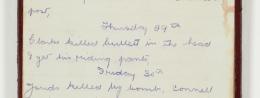 post,
Thursday 29th
Clarke killed bullet in the head
I get his riding pants,
Friday 30th
Jones killed by bomb, Connell